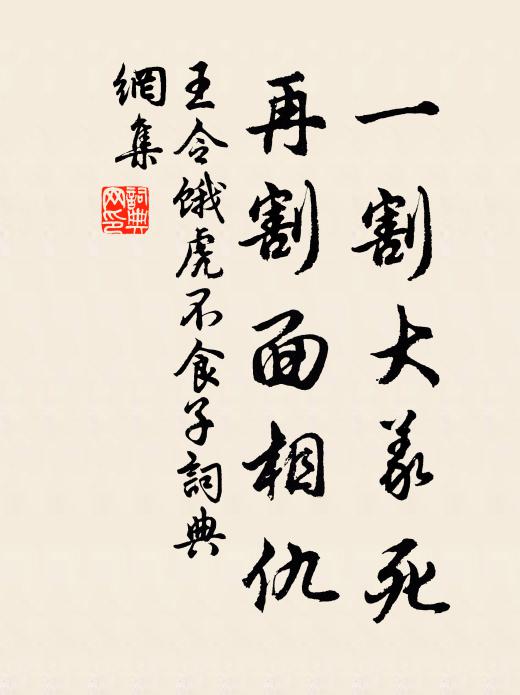 一割大義死
再割面相仇
王令餓虎不食子詞典
網集
詞典網印